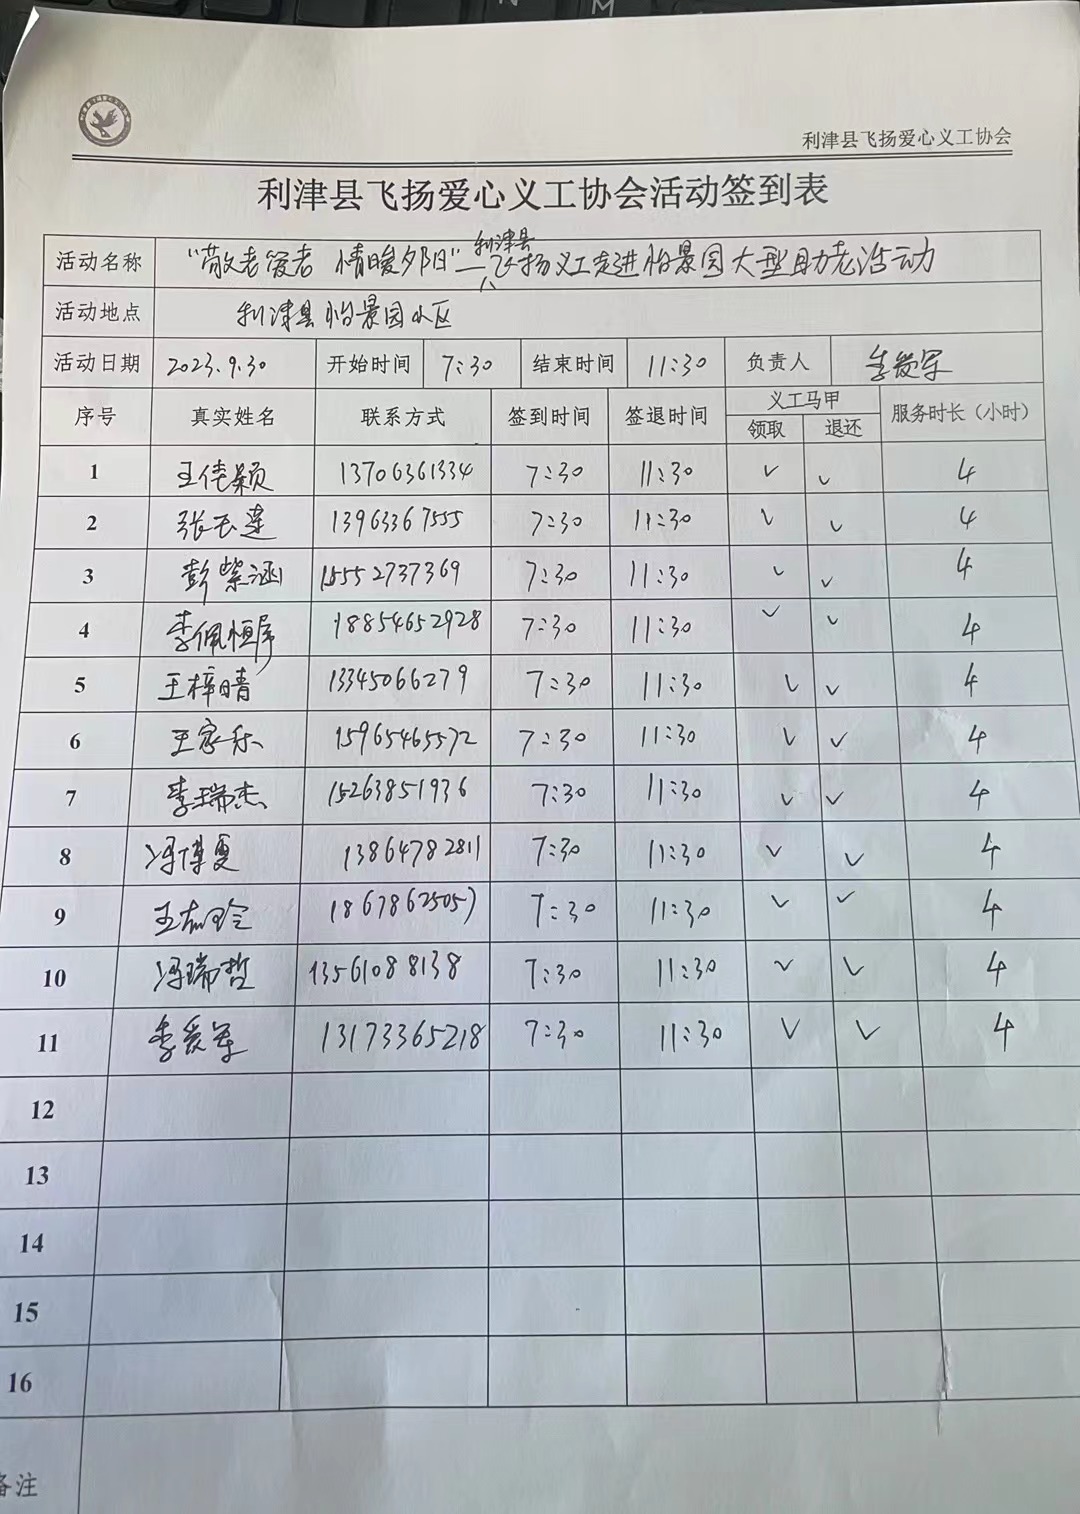 利津县飞扬爱心义工协会
利津县飞扬爱心义工协会活动签到表
活动名称 "敬老爱老 情暖夕阳"—利津县飞扬义工走进怡景园大型助老活动
活动地点 利津县怡景园小区
活动日期 2023.9.30 开始时间 7:30 结束时间 11:30 负责人 李爱军
序号 真实姓名 联系方式 签到时间 签退时间 义工马甲 服务时长（小时）
领取 退还
1 王佳颖 13706361334 7:30 11:30 ✓ ✓ 4
2 张玉莲 13963367555 7:30 11:30 ✓ ✓ 4
3 彭紫涵 15552737369 7:30 11:30 ✓ ✓ 4
4 李佩恒 18854652928 7:30 11:30 ✓ ✓ 4
5 王梓晴 13345066279 7:30 11:30 ✓ ✓ 4
6 王家乐 15965465572 7:30 11:30 ✓ ✓ 4
7 李瑞杰 15263851936 7:30 11:30 ✓ ✓ 4
8 冯博夏 13864782811 7:30 11:30 ✓ ✓ 4
9 王志玲 18678625057 7:30 11:30 ✓ ✓ 4
10 冯瑞哲 13561088138 7:30 11:30 ✓ ✓ 4
11 李爱军 13173365218 7:30 11:30 ✓ ✓ 4
12
13
14
15
16
备注